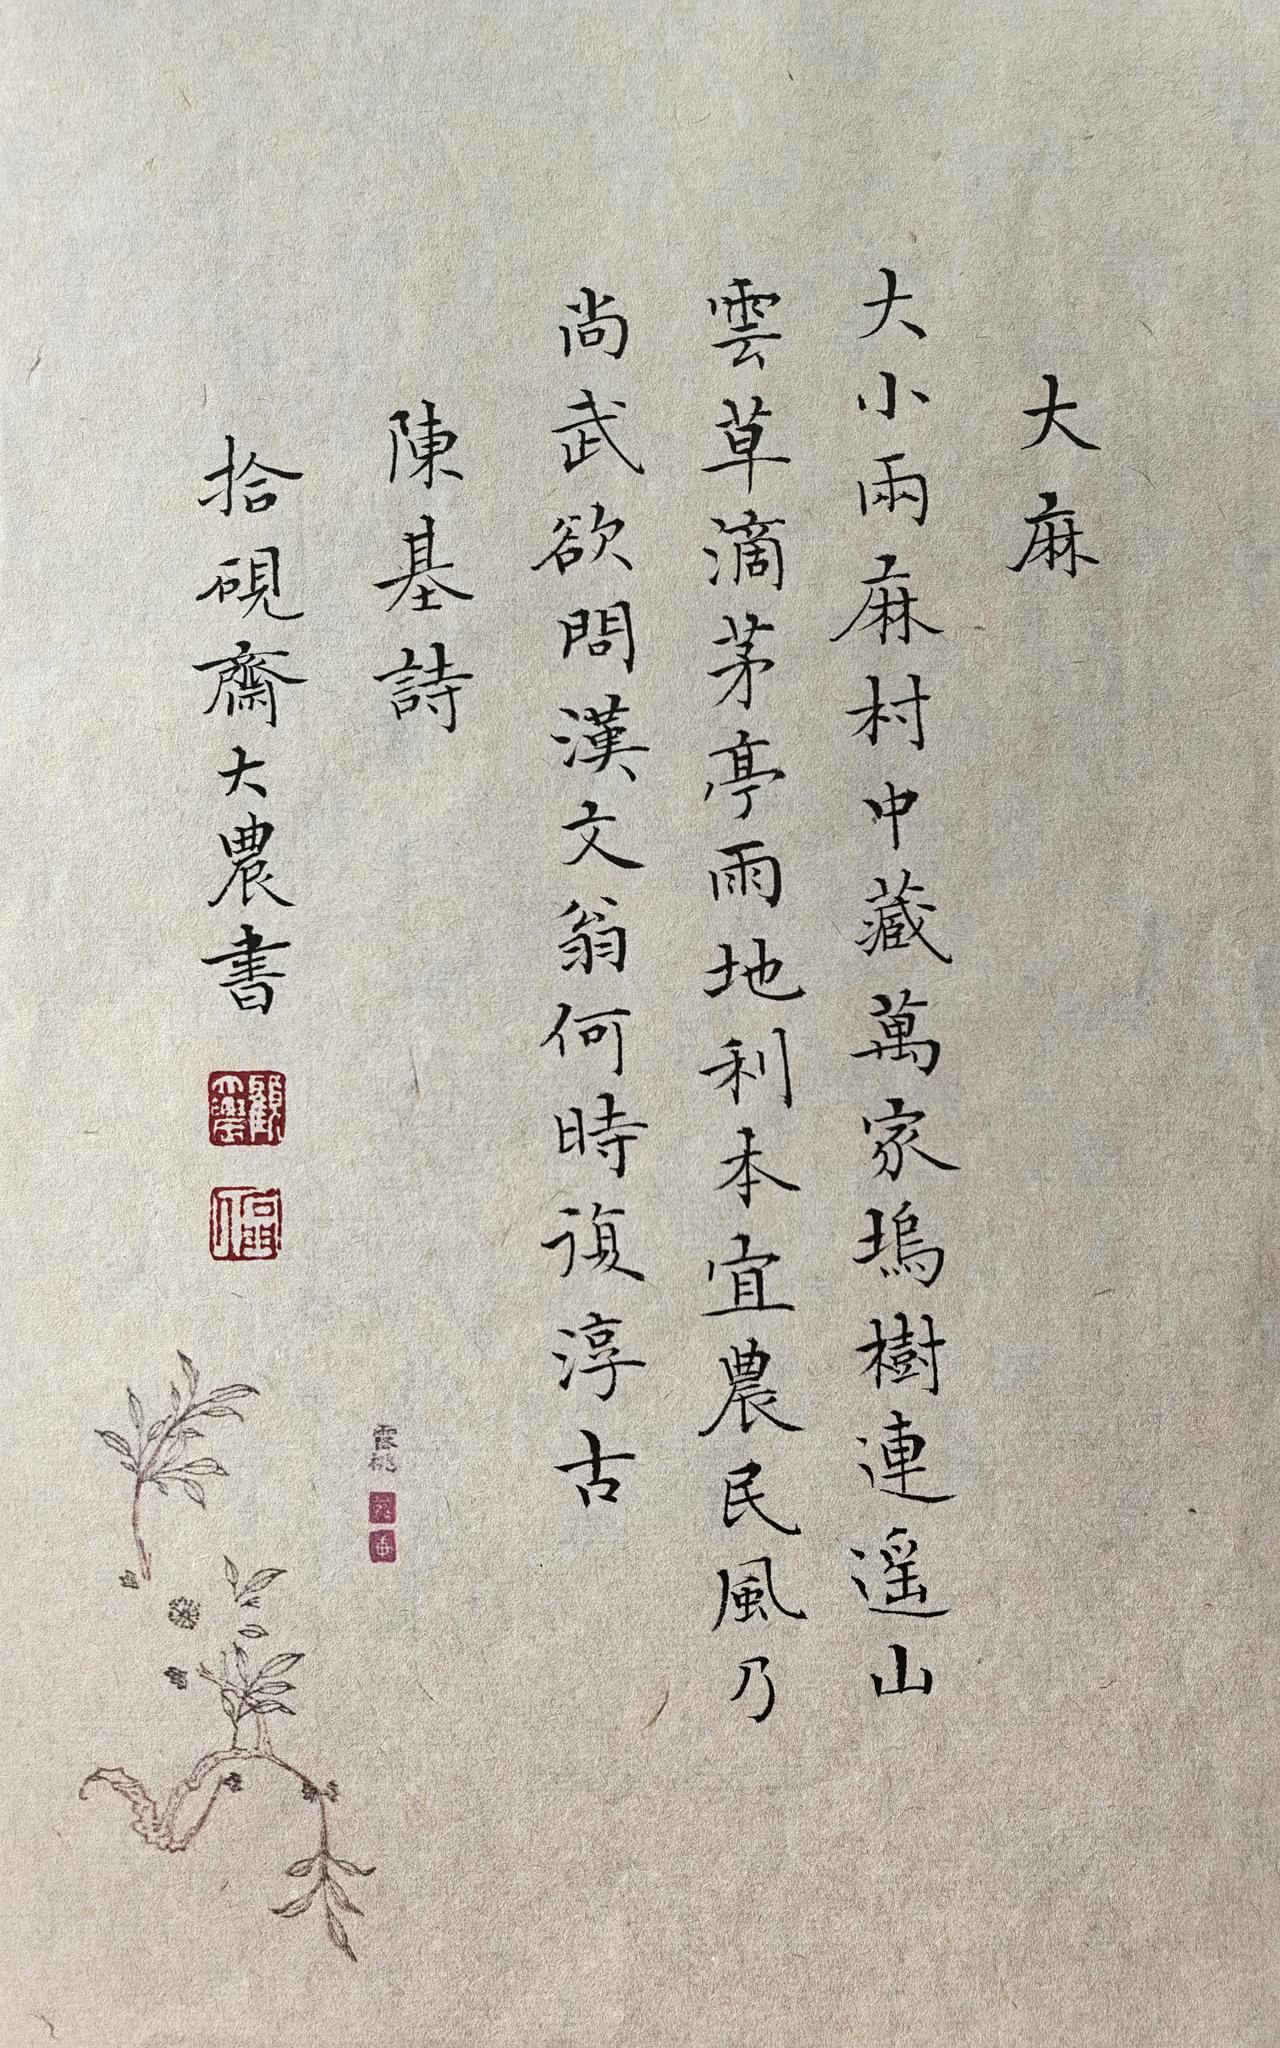 大麻
大小兩麻村中藏萬家塢樹連遥山
雲草滴茅亭雨地利本宜農民風乃
尚武欲問漢文翁何時復淳古
陳基詩
拾硯齋大農書